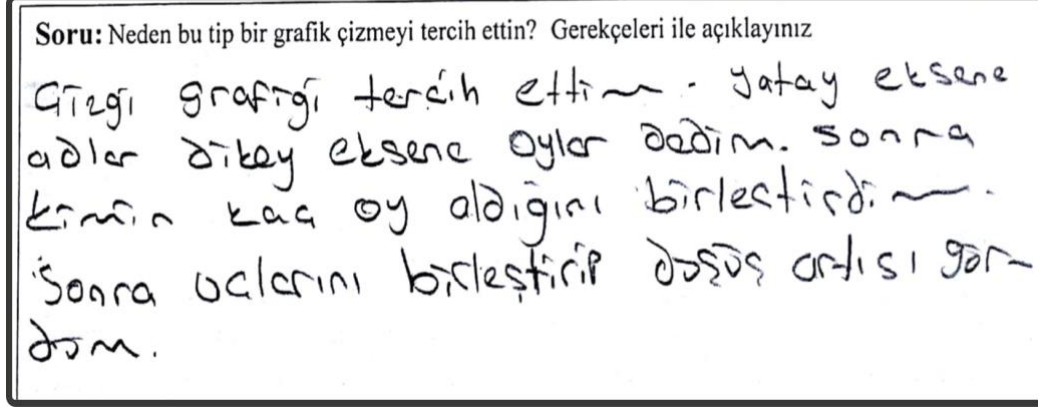 Soru: Neden bu tip bir grafik çizmeyi tercih ettin? Gerekçeleri ile açıklayınız
Çizgi grafiği tercih ettim. Yatay eksene
adlar dikey eksene oylar dedim. Sonra
kimin kaç oy aldığını birleştirdim.
Sonra uçlarını birleştirip düşüş artışı gör-
düm.